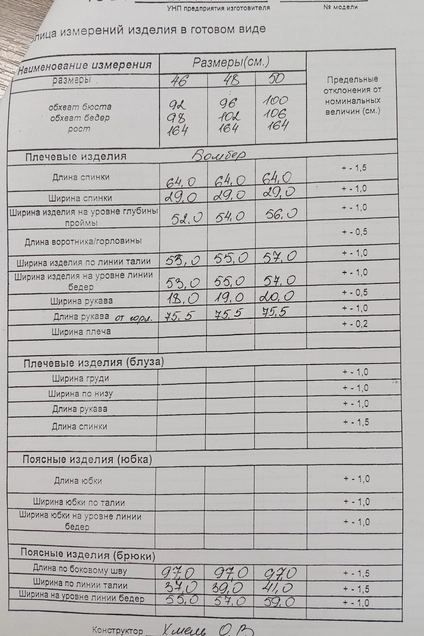 УНП предприятия изготовителя № модели
лица измерений изделия в готовом виде
Наименование измерения Размеры(см.) Предельные отклонения от номинальных величин (см.)
размеры 46 48 50
обхват бюста 92 96 100
обхват бедер 98 102 106
рост 164 164 164
Плечевые изделия Бомбер
Длина спинки 64,0 64,0 64,0 + - 1,5
Ширина спинки 29,0 29,0 29,0 + - 1,0
Ширина изделия на уровне глубины проймы 52,0 54,0 56,0 + - 1,0
Длина воротника/горловины + - 0,5
Ширина изделия по линии талии 53,0 55,0 57,0 + - 1,0
Ширина изделия на уровне линии бедер 53,0 55,0 57,0 + - 1,0
Ширина рукава 18,0 19,0 20,0 + - 0,5
Длина рукава от горл. 75,5 75,5 75,5 + - 1,0
Ширина плеча + - 0,2
Плечевые изделия (блуза)
Ширина груди + - 1,0
Ширина по низу + - 1,0
Длина рукава + - 1,0
Длина спинки + - 1,5
Поясные изделия (юбка)
Длина юбки + - 1,0
Ширина юбки по талии + - 1,0
Ширина юбки на уровне линии бедер + - 1,0
Поясные изделия (брюки)
Длина по боковому шву 97,0 97,0 97,0 + - 1,5
Ширина по линии талии 37,0 39,0 41,0 + - 1,5
Ширина на уровне линии бедер 55,0 57,0 59,0 + - 1,0
Конструктор Хмель О.В.